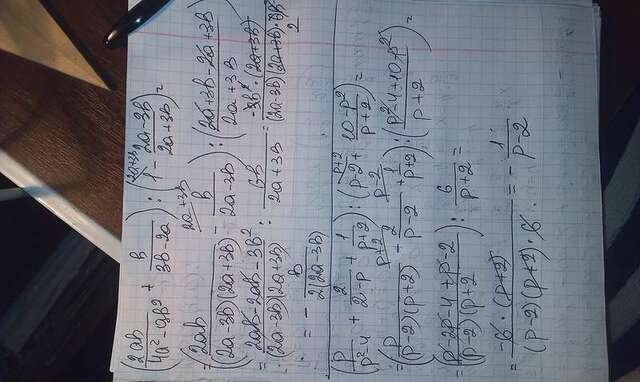 (2ab/(4a²-9b²) + b/(3b-2a)) : (1 - (2a-3b)/(2a+3b)) =
= (2ab/((2a-3b)(2a+3b)) - b/(2a-3b)) : ((2a+3b-2a+3b)/(2a+3b)) =
= (2ab-2ab-3b²)/((2a-3b)(2a+3b)) : 6b/(2a+3b) = -3b²·(2a+3b)/((2a-3b)(2a+3b)·6b) =
= - b/(2(2a-3b))
(p/(p²-4) + 2/(2-p) + 1/(p+2)) : (p-2 + (10-p²)/(p+2)) =
= (p/((p-2)(p+2)) - 2/(p-2) + 1/(p+2)) : ((p²-4+10-p²)/(p+2)) =
= (p-2p-4+p-2)/((p-2)(p+2)) : 6/(p+2) =
= -6·(p+2)/((p-2)(p+2)·6) = - 1/(p-2)